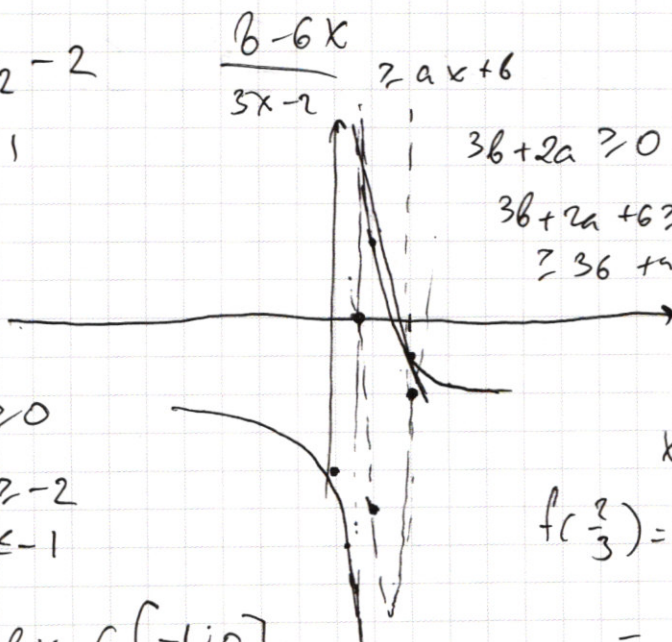 2 - 2
8 - 6x
3x - 2
≥ ax + b
1
3b + 2a ≥ 0
3b + 2a + 6 ≥
≥ 36 + a
≥ 0
≥ -2
≤ -1
x
f(2/3) =